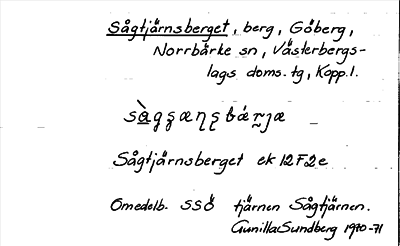 Sågtjärnsberget, berg, Göberg,
Norrbärke sn, Västerbergs-
lags doms. tg, Kopp. l.
Sågtjärnsberget ek 12F2e
Omedelb. SSÖ tjärnen Sågtjärnen.
Gunilla Sundberg 1970-71